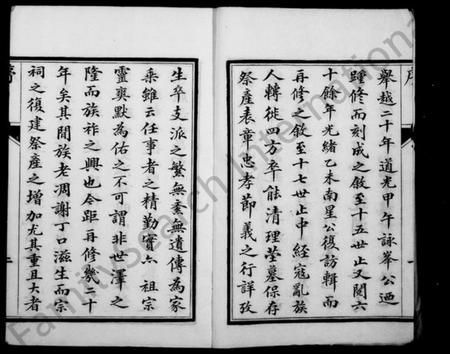 序
舉越二十年道光甲午詠峯公迺
踵修而刻成之敘至十五世止又閱六
十餘年光緒乙未南星公復訪輯而
再修之敘至十七世止中經寇亂族
人轉徙四方卒能清理塋墓保存
祭產表章忠孝節義之行詳攷
生卒支派之繁無紊無遺傳為家
乘雖云任事者之精勤實亦祖宗
靈爽默為佑之不可謂非世澤之
隆而族祚之興也今距再修幾二十
年矣其間族老凋謝丁口滋生而宗
祠之復建祭產之增加尤其重且大者
序
二
FamilySearch International